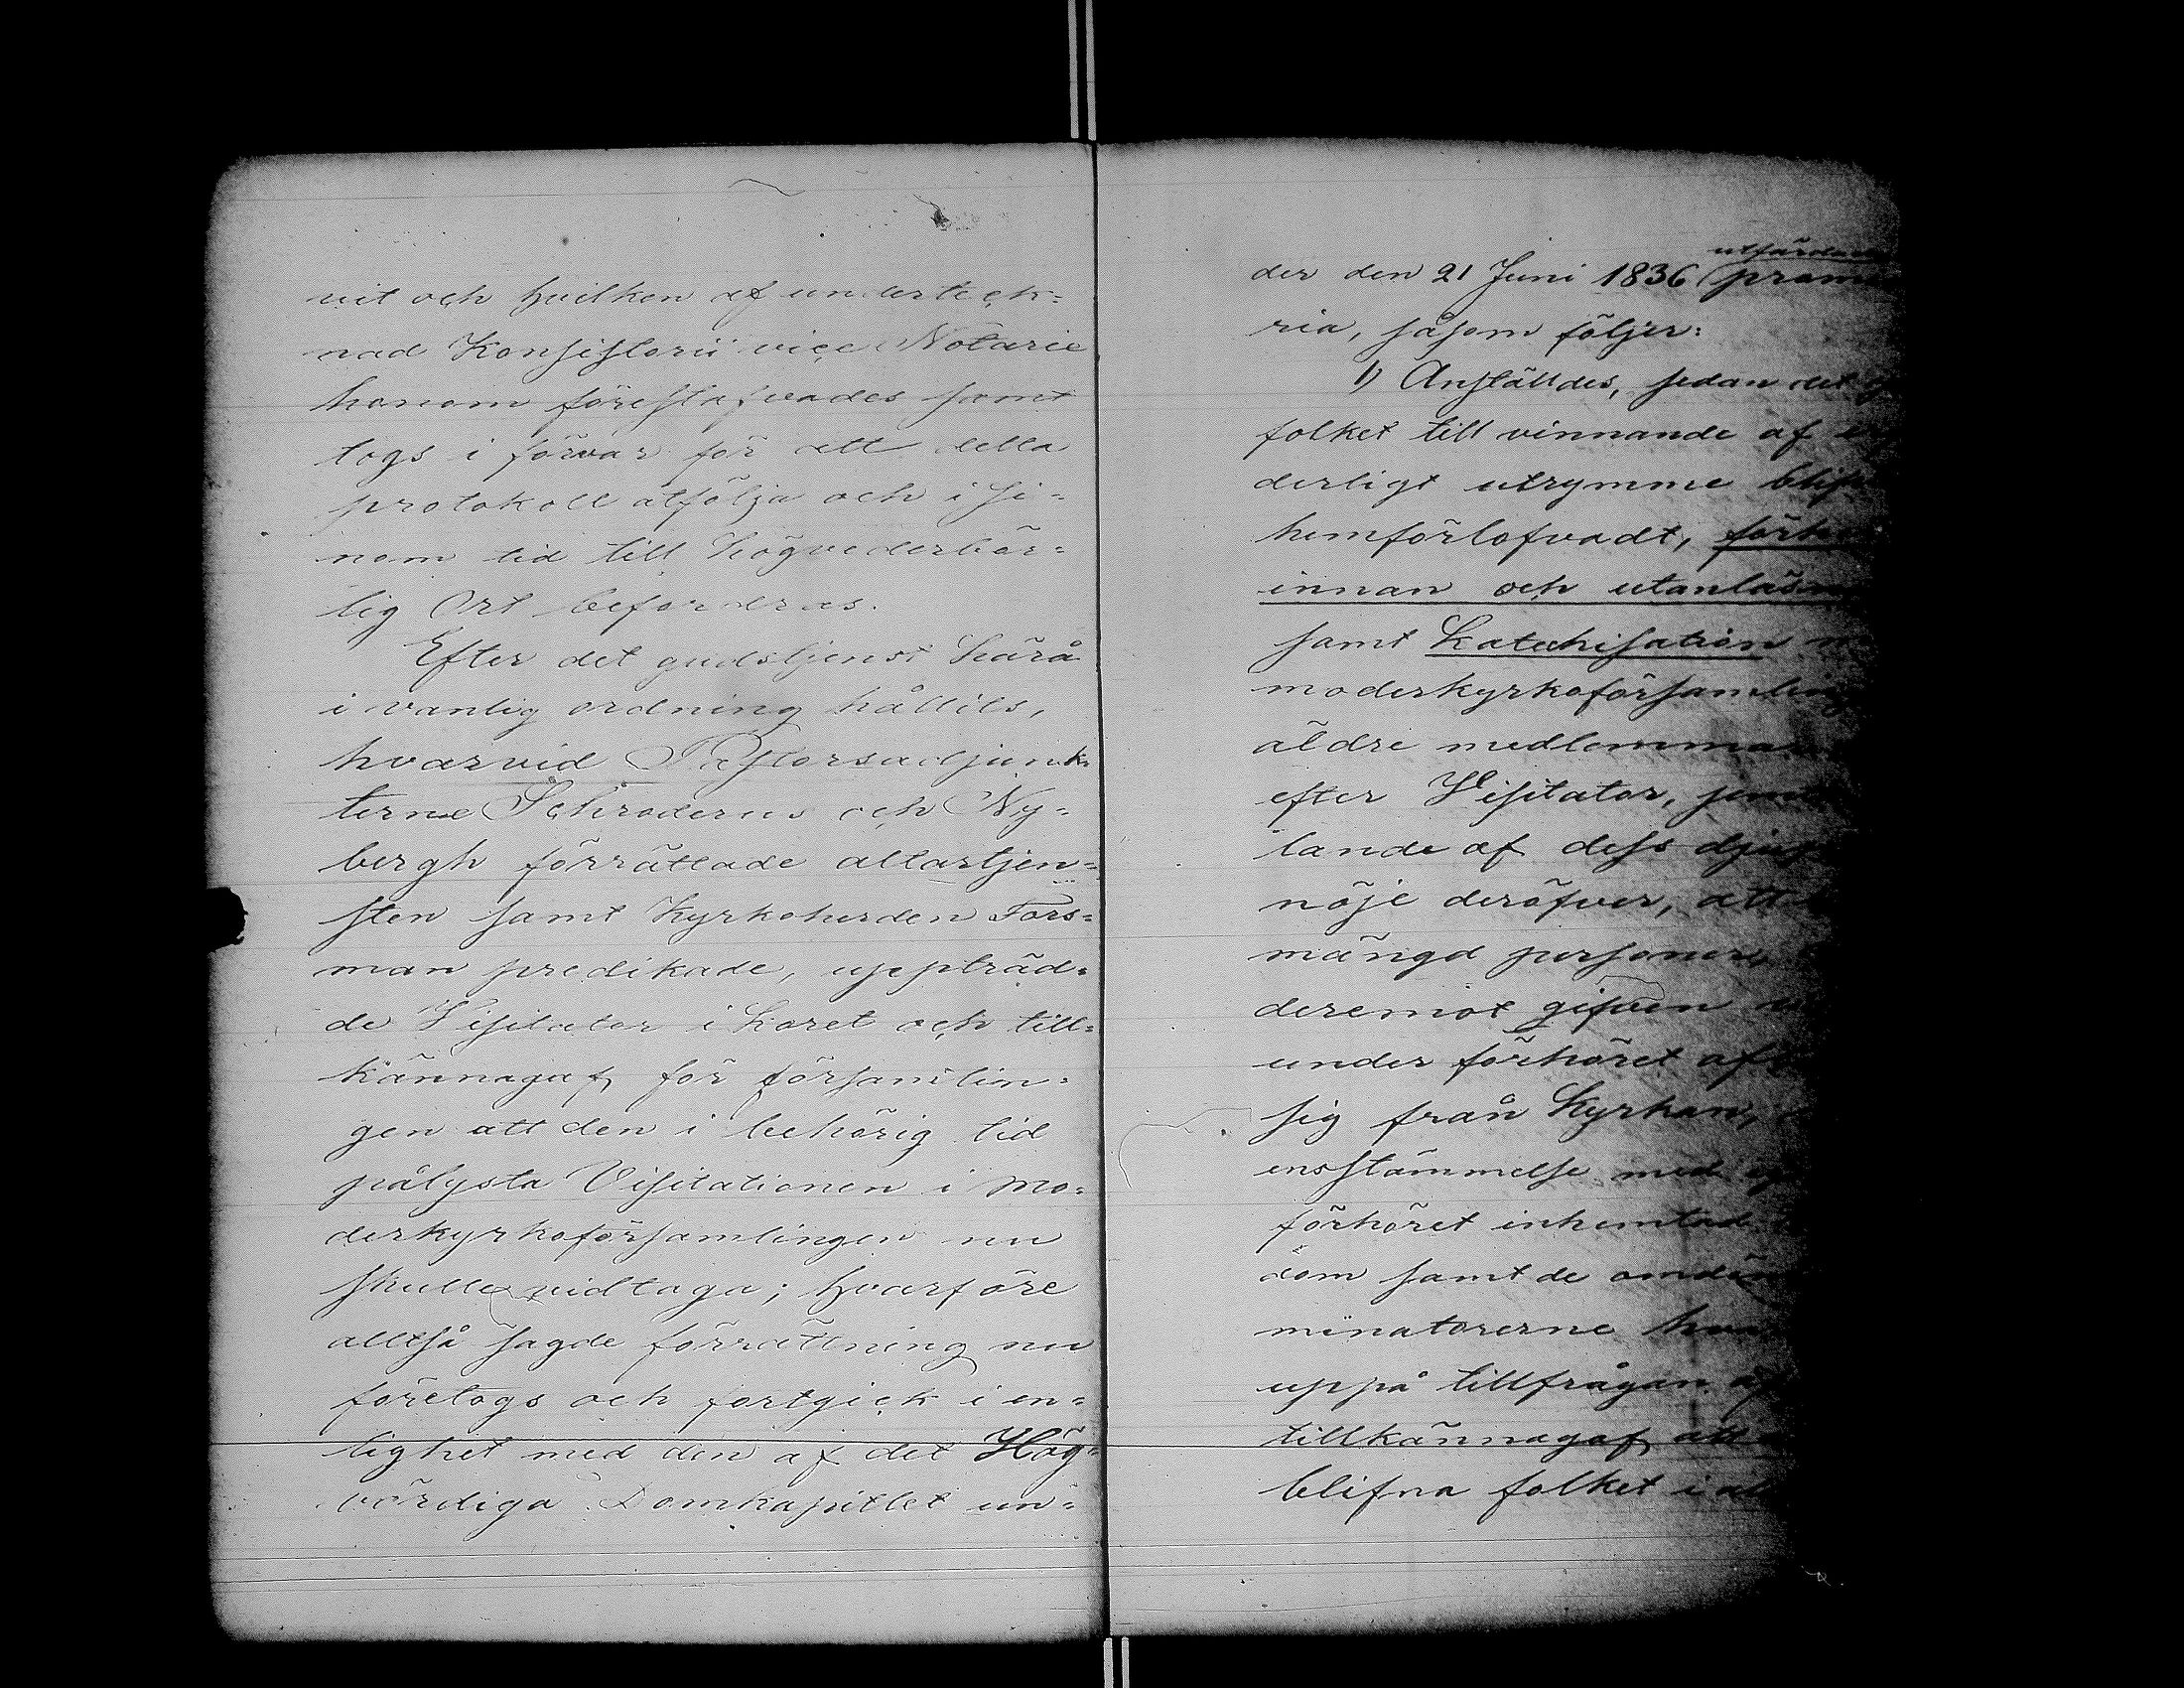 vit och hvilken af underteck=
nad Konsistorii vice Notarie
honom förestafvades samt
togs i förvar för att detta
protokoll åtfölja och i si=
nom tid till högvederbör=
lig Ort befordras.
Efter det gudstjenst härå
i vanlig ordning hållits,
hvarvid Pastorsadjunk=
terne Schroderus och Ny=
bergh förrättade altartjen=
sten samt Kyrkoherden Fors=
man predikade, uppträd=
de Visitator i koret och till=
kännagaf för församlin=
gen att den i behörig tid
pålysta Visitationen i mo=
derkyrkoförsamlingen nu
skulle vidtaga; hvarföre
alltså sagde förrättning nu
företogs och fortgick i en=
lighet med den af det Hög=
vördiga Domkapitlet un=
der den 21 Juni 1836 utfärdade
ria, såsom följer:
1) Anställdes, sedan det
folket till vinnande af
derligt utrymme
hemförlofvadt,
innan och utanläsn
samt Katechisation
moderkyrkoförsamling
äldre medlemmar
efter Visitator,
lande af dess
nöje deröfver, att
mängd personer,
deremot gifven
under förhöret
sig från Kyrkan,
ensstämmelse med
förhöret inhemtad
dom samt de
minatorerne
uppå tillfrågan af
tillkännagaf, att
blifna folket i